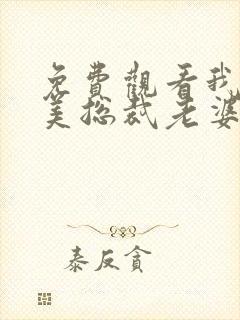 免費觀看我
美總裁老婆
泰反貪